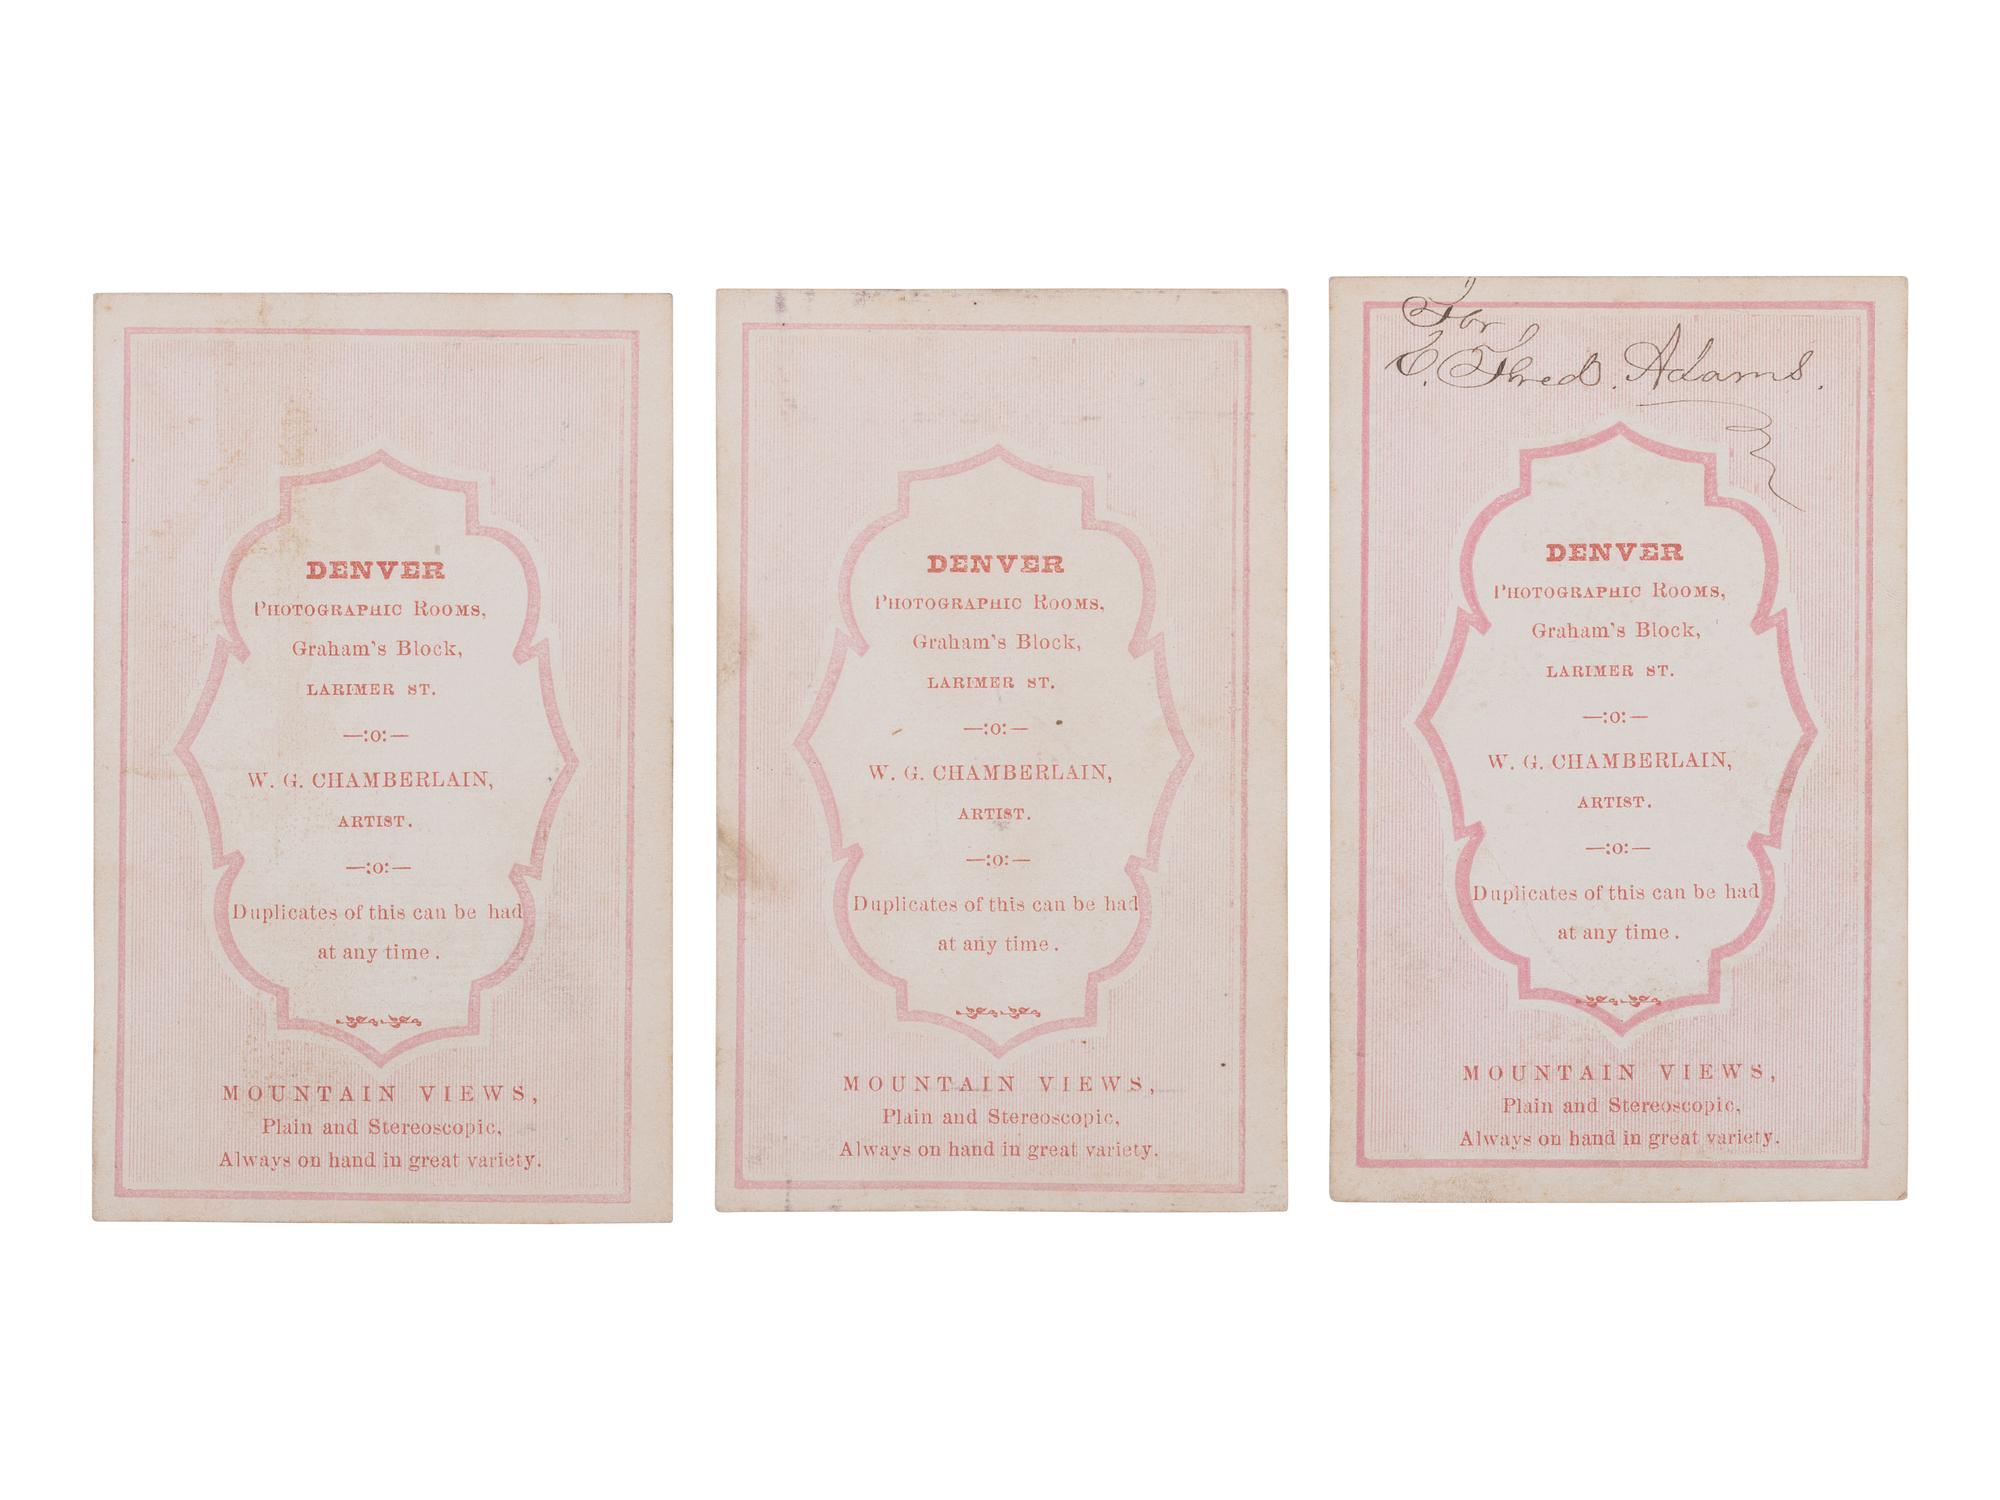 DENVER
PHOTOGRAPHIC ROOMS,
Graham's Block,
LARIMER ST.
—:o:—
W. G. CHAMBERLAIN,
ARTIST.
—:o:—
Duplicates of this can be had
at any time.
MOUNTAIN VIEWS,
Plain and Stereoscopic,
Always on hand in great variety.
DENVER
PHOTOGRAPHIC ROOMS,
Graham's Block,
LARIMER ST.
—:o:—
W. G. CHAMBERLAIN,
ARTIST.
—:o:—
Duplicates of this can be had
at any time.
MOUNTAIN VIEWS,
Plain and Stereoscopic,
Always on hand in great variety.
For
E. Fred. Adams.
DENVER
PHOTOGRAPHIC ROOMS,
Graham's Block,
LARIMER ST.
—:o:—
W. G. CHAMBERLAIN,
ARTIST.
—:o:—
Duplicates of this can be had
at any time.
MOUNTAIN VIEWS,
Plain and Stereoscopic,
Always on hand in great variety.